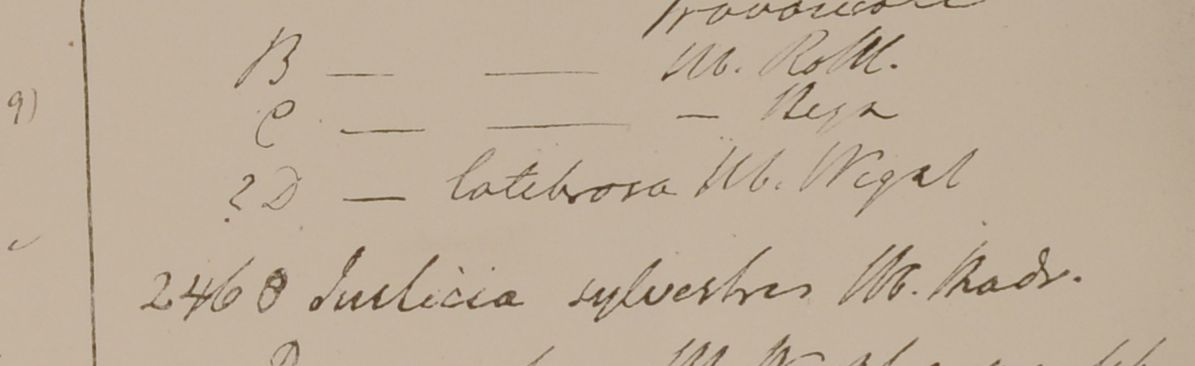 B — — Hb. Rottl.
9) C — — — Heyn
?D — latebrosa Hb. Wight
2468 Justicia sylvestris Hb. Madr.